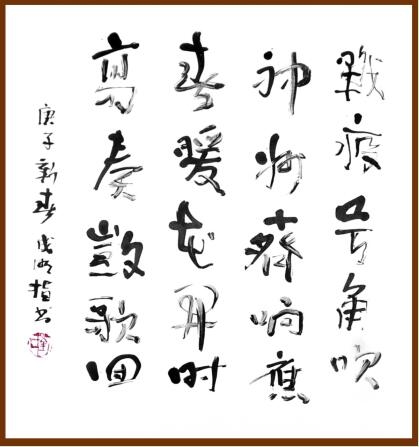 戰疫号角吹
神州齊响應
春暖花開时
高奏凱歌回
庚子新春
书